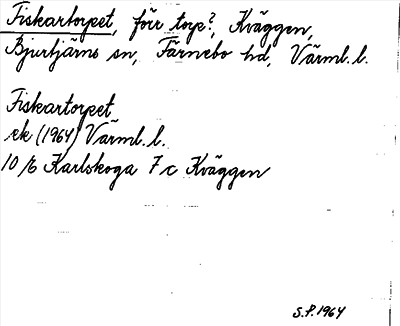 Fiskartorpet, förr torp?, Kväggen,
Bjurtjärns sn, Färnebo hd, Värml. l.
Fiskartorpet
ek (1964) Värml. l.
10/6 Karlskoga 7c Kväggen
S.P. 1964